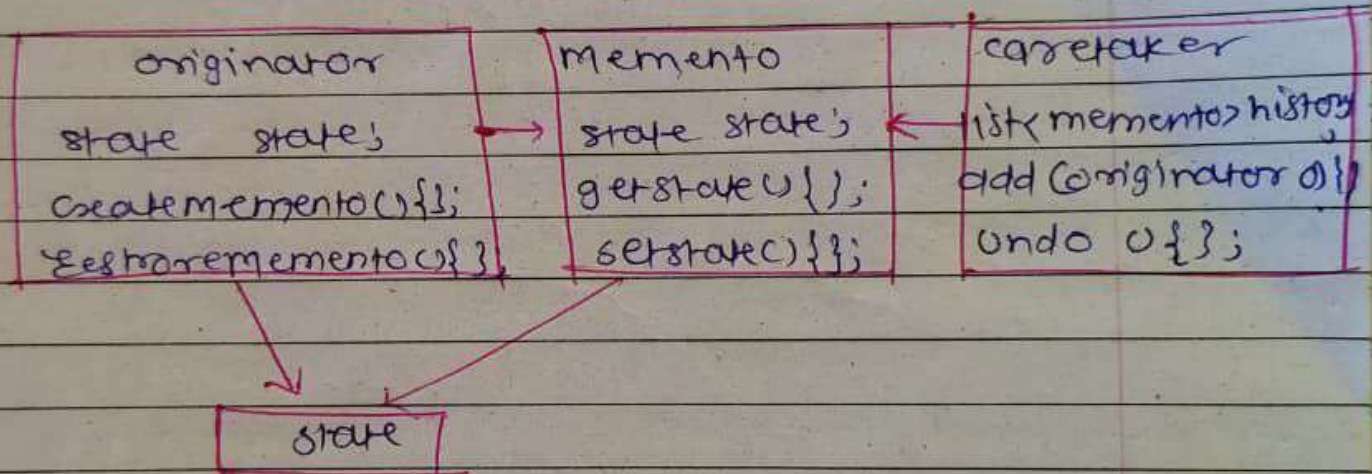 originator
state state;
creatememento(){};
restorememento(){};
memento
state state;
getstate(){};
setstate(){};
caretaker
list<memento>history;
add(originator o){}
undo(){};
state